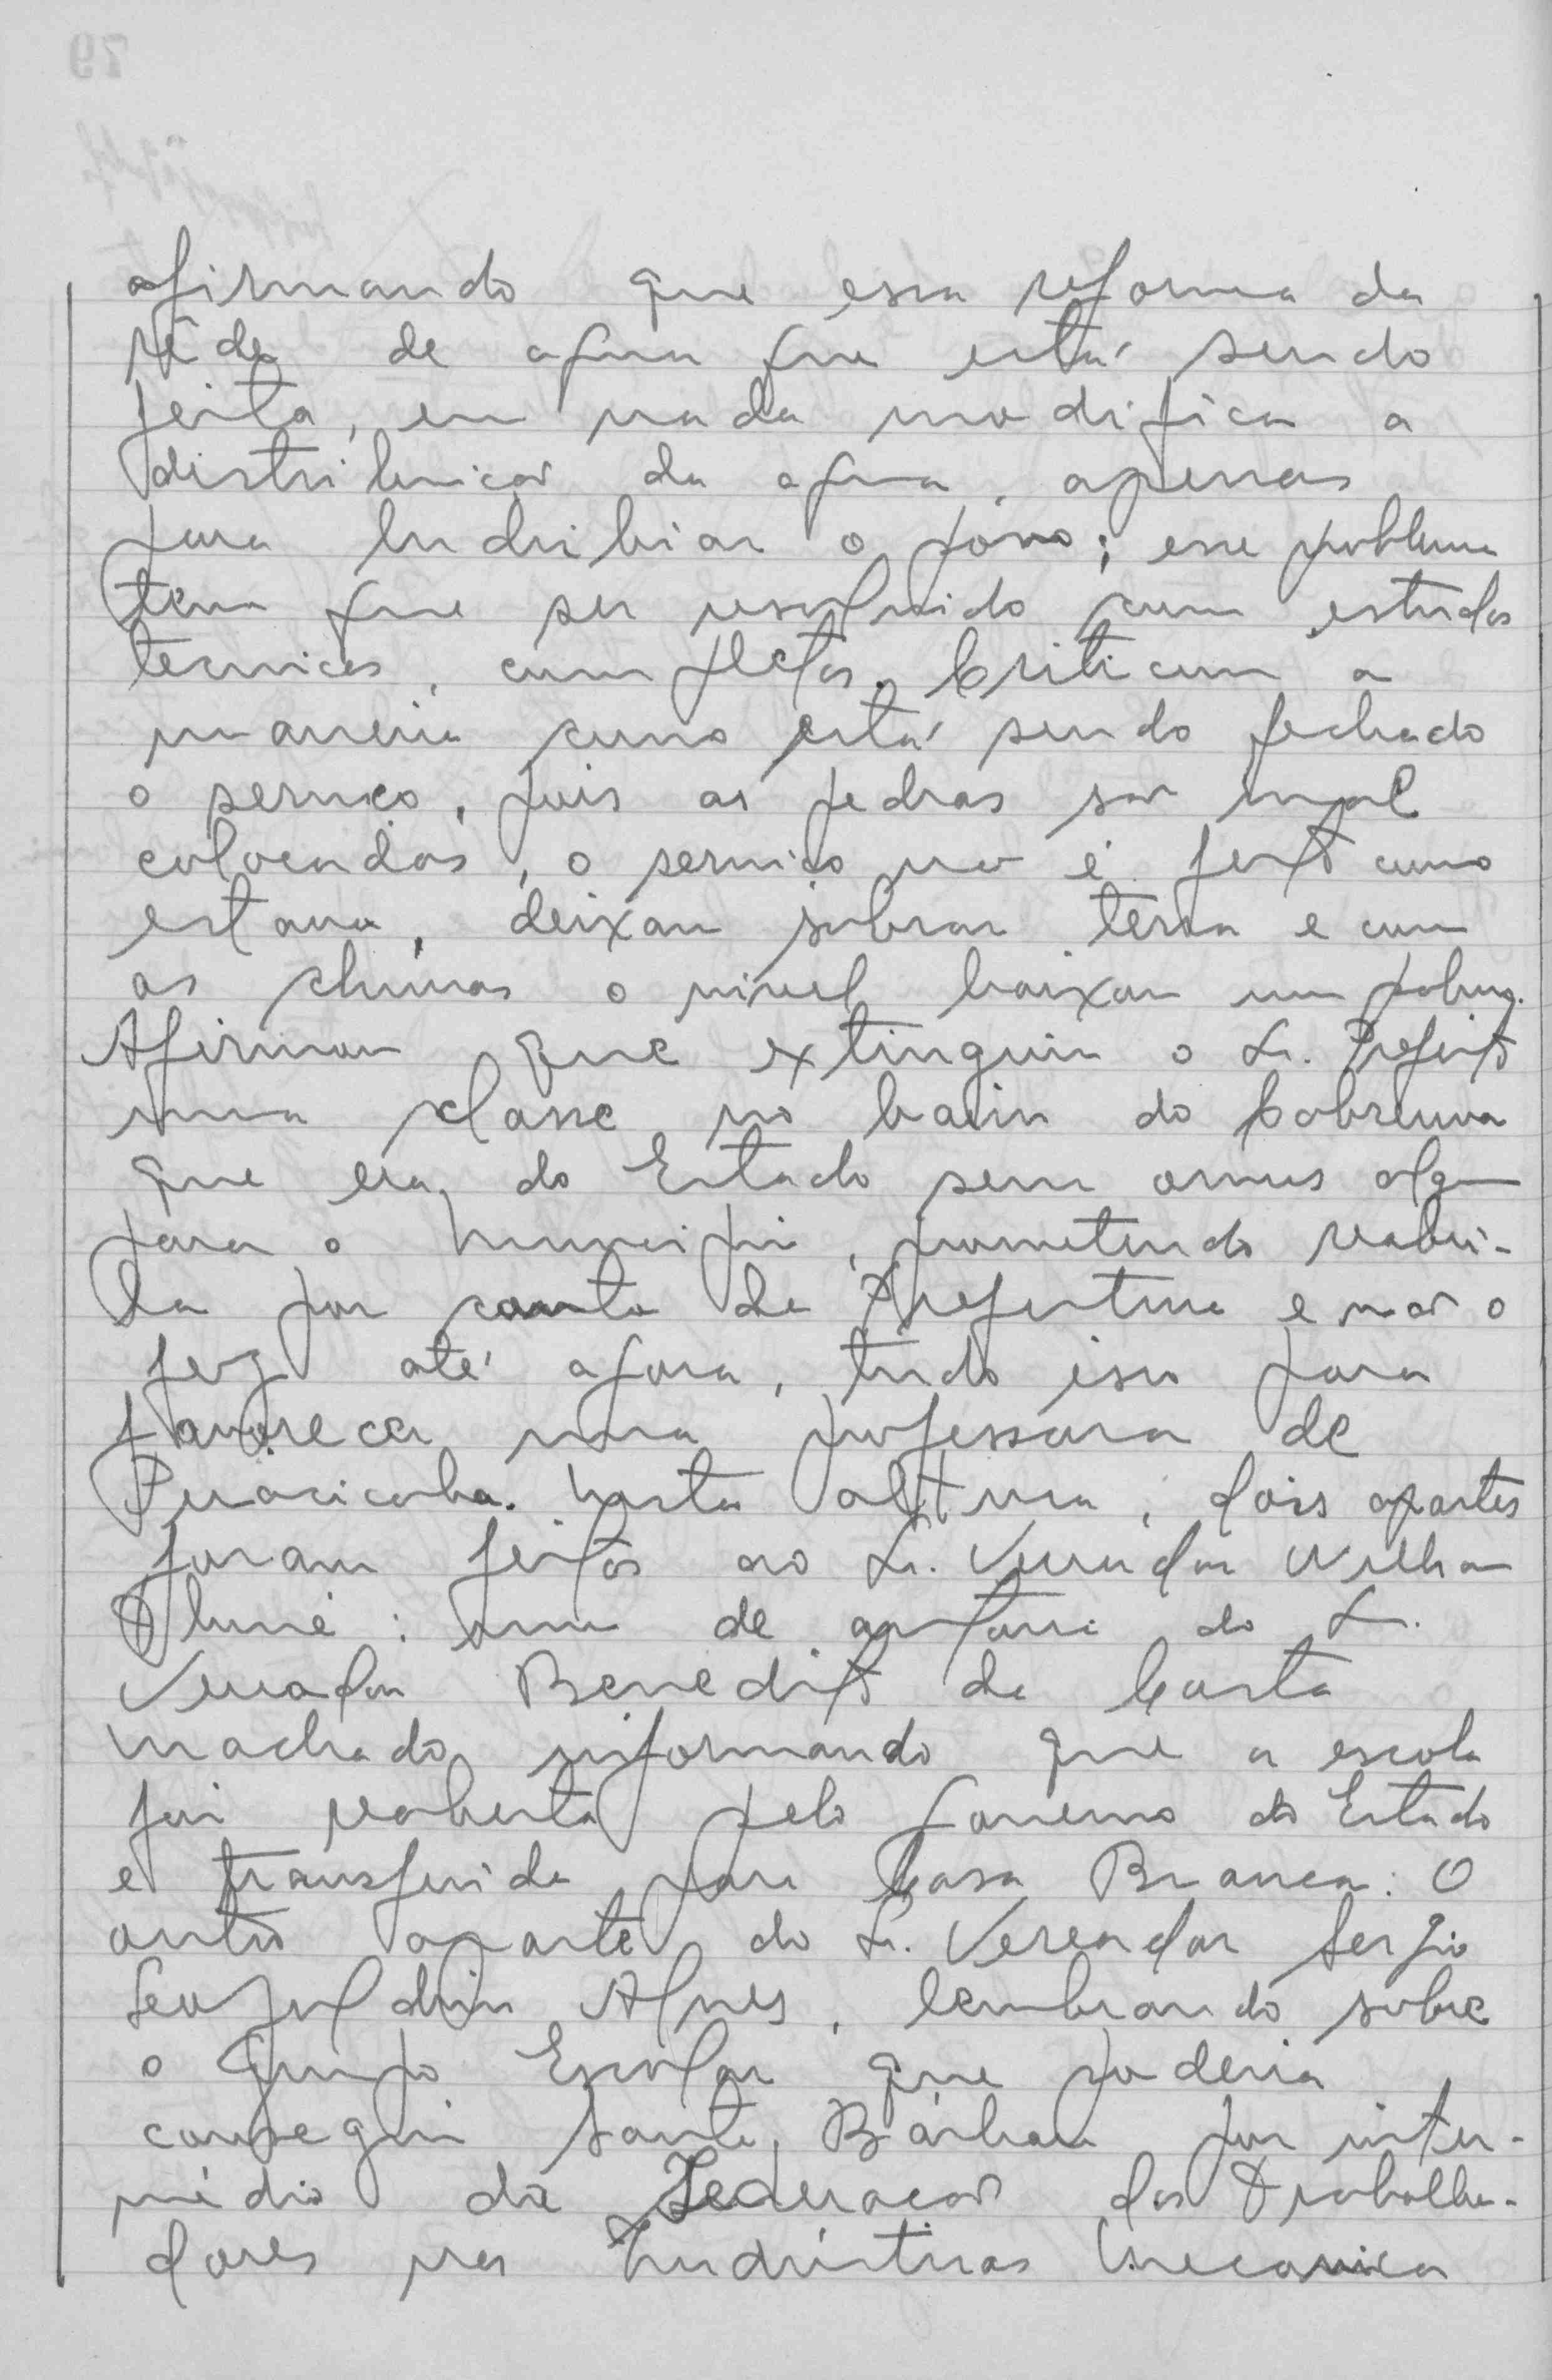 afirmando que essa reforma da
rêde de agua que está sendo
feita, em nada modifica a
distribuicao da agua, apenas
para ludribiar o povo; esse problema
tem que ser resolvido com estudos
tecnicos, completos. Criticou a
maneira como está sendo fechado
o serviço, pois as pedras sao mal
colocadas, o serviço nao é feito como
estava, deixam sobrar terra e com
as chuvas o nivel baixam um
Afirmou que extinguiu o Sr. Prefeito
uma classe no bairro do
que era do Estado sem onus algum
para o Municipio, prometendo reabri-
la por conta da Prefeitura e nao o
fez até agora, tudo isso para
favorecer uma professora de
Piracicaba. Nesta altura, dois apartes
foram feitos ao Sr. Vereador
um de autoria do Sr.
Vereador Benedito da Costa
Machado, informando que a escola
foi reaberta pelo Governo do Estado
e transferida para Casa Branca. O
outro aparte do Sr. Vereador Sergio
Leopoldino Alves, lembrando sobre
o Grupo Escolar que poderia
conseguir Santa Bárbara por inter-
médio da Federacao dos Trabalha-
dores nas Indústrias Mecanica